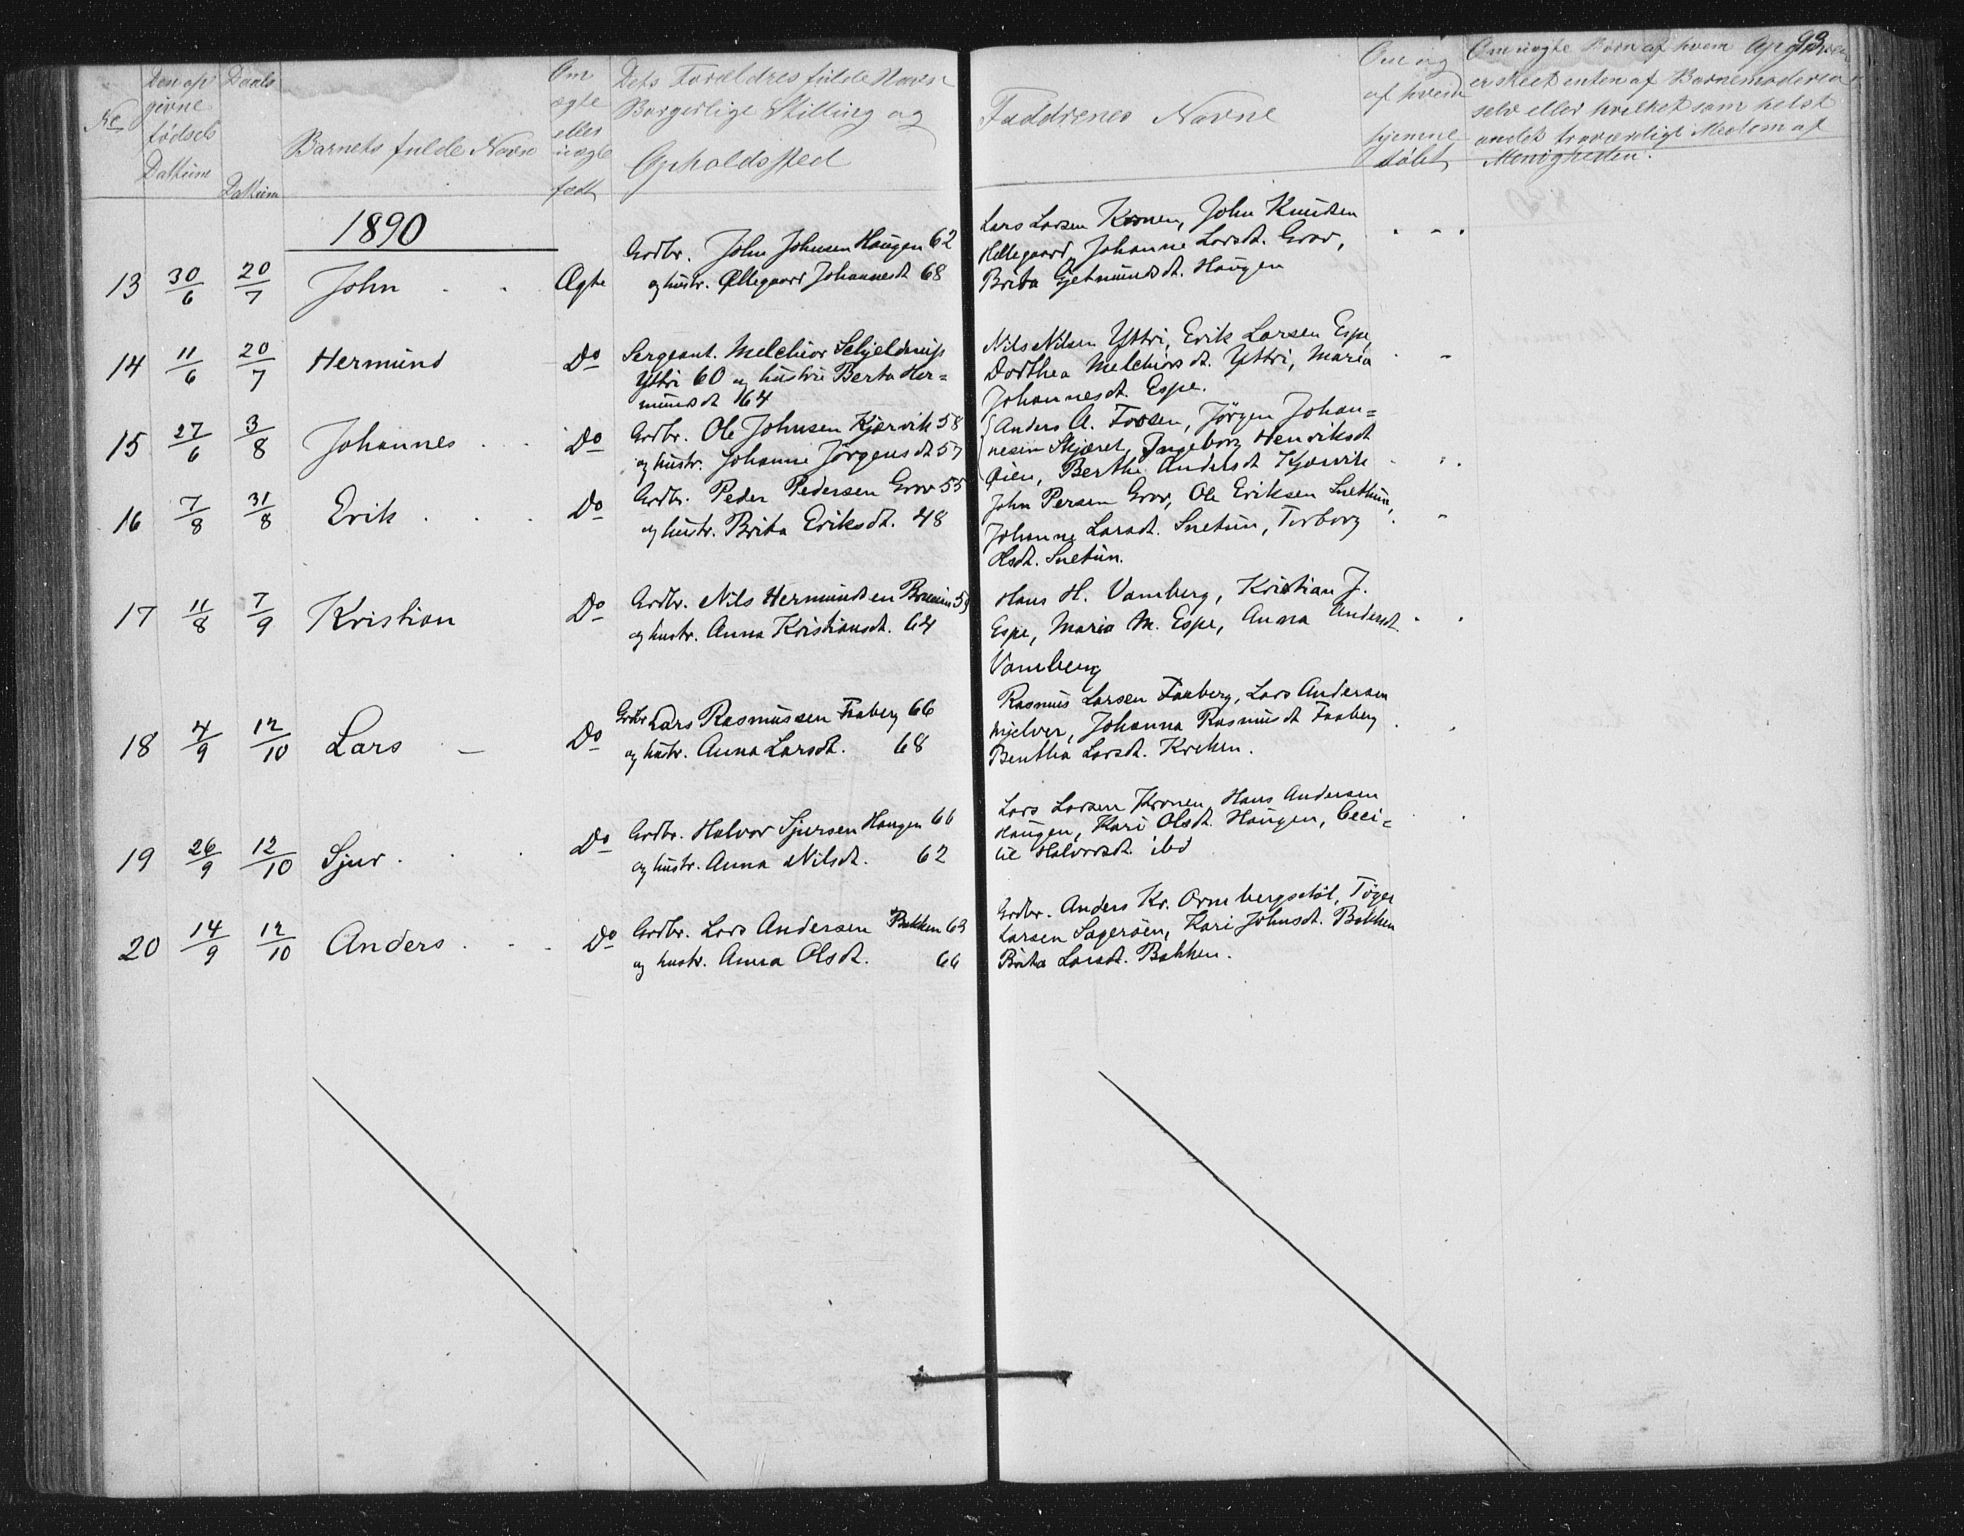 93
No
Den op
givne
Fødsels
Datum
Daabs
Datum
Barnets fulde Navn
Om
ægte
eller
uægte
født
Dets Forældres fulde Navn
Borgerlige Stilling og
Opholdssted
Faddrenes Navne
Om og
af hvem
hjemme
døbt
Om uægte Børn af hvem Opgivelsen
er skeet enten af Barnemoderen
selv eller hvilket som helst
andet troværdigt Medlem af
Menigheden.
1890
13 30/6 20/7 John Ægte
Grdbr. John Johnsen Haugen 62
og hustr. Ollegaard Johannesdt 68
Lars Larsen Kronen, John Knudsen
Hellegaard, Johanne Larsdt. Grov,
Brita Gjetmundsdt. Haugen
14 11/6 20/7 Hermund Do
Sergeant. Melchior Schjelderup
Yttri 60 og hustru Berta Her=
mundsdt 64
Nils Nilsen Yttri, Erik Larsen Espe,
Dorthea Melchiorsdt. Yttri, Maria
Johannesdt. Espe.
15 27/6 3/8 Johannes Do
Grdbr. Ole Johnsen Kjærvik 58
og hustr. Johanne Jørgensdt 57
Anders A. Fossen, Jørgen Johan=
nesen Skjæret, Ingeborg Henriksdt
Øien, Berthe Andersdt Kjærvik
16 7/8 31/8 Erik Do
Grdbr. Peder Pedersen Grov 55
og hustr. Brita Eriksdt. 48
John Persen Grov, Ole Eriksen Snethun,
Johanne Larsdt. Snetun, Torborg
Olsdt. Snetun.
17 11/8 7/9 Kristian Do
Grdbr. Nils Hermundsen 59
og hustr. Anna Kristiansdt. 64
Hans H. Vamberg, Kristian J.
Espe, Maria M. Espe, Anna Andersdt
Vamberg
18 4/9 12/10 Lars Do
Grdbr Lars Rasmussen Faaberg 66
og hustr. Anna Larsdt. 68
Rasmus Larsen Faaberg, Lars Andersen
Mjelver, Johanna Rasmusdt Faaberg
Benthia Larsdt. Kreken.
19 26/9 12/10 Sjur Do
Grdbr. Halvor Sjursen Haugen 66
og hustr. Anna Nilsdt. 62
Lars Larsen Kronen, Hans Andersen
Haugen, Kari Olsdt. Haugen, Ceci=
lie Halvorsdt. ibd
20 14/9 12/10 Anders Do
Grdbr. Lars Andersen Bakken 63
og hustr. Anna Olsdt. 66
Grdbr. Anders Kr. Ormbergstøl, Tøger
Larsen Sagerøen, Kari Johnsdt. Bakken
Brita Larsdt. Bakken.